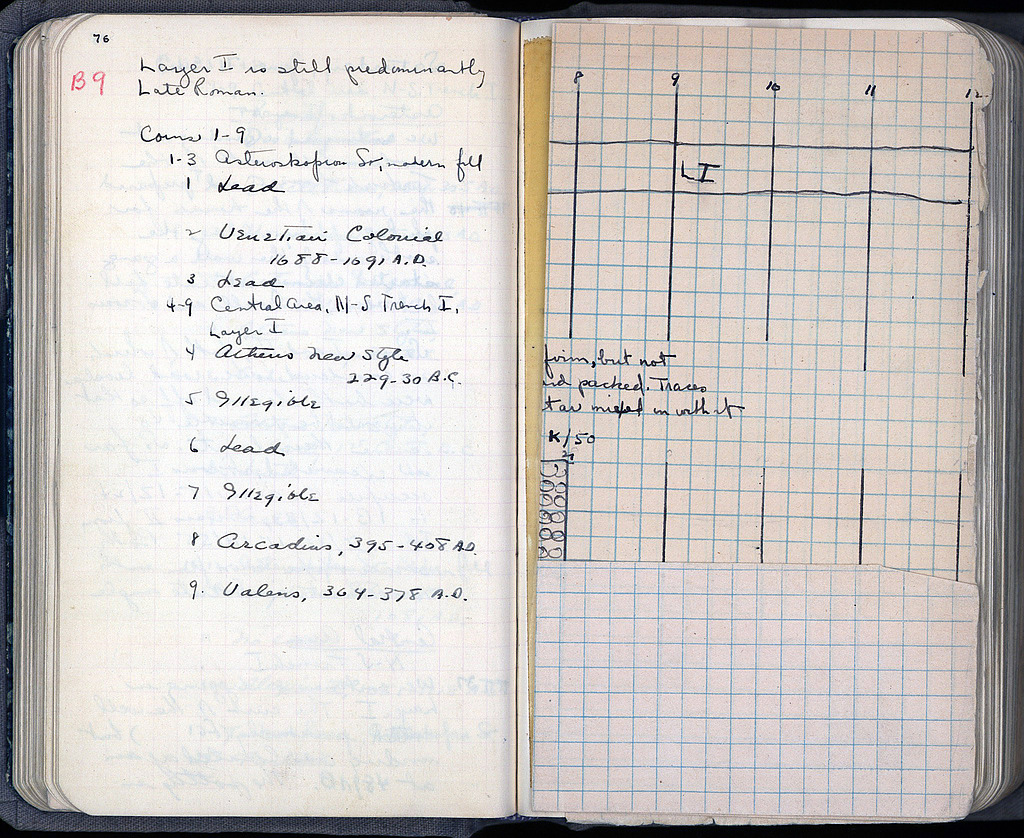 76
B9
Layer I is still predominantly
Late Roman.
Coins 1-9
1-3 Asteroskopion Sr, modern fill
1 Lead
2 Venetian Colonial
1688-1691 A.D.
3 Lead
4-9 Central Area, N-S Trench I,
Layer I
4 Athens New Style
229-30 B.C.
5 Illegible
6 Lead
7 Illegible
8 Arcadius, 395-408 A.D.
9. Valens, 364-378 A.D.
8 9 10 11 12
LI
firm, but not
packed. Traces
tar mixed in with it
K/50